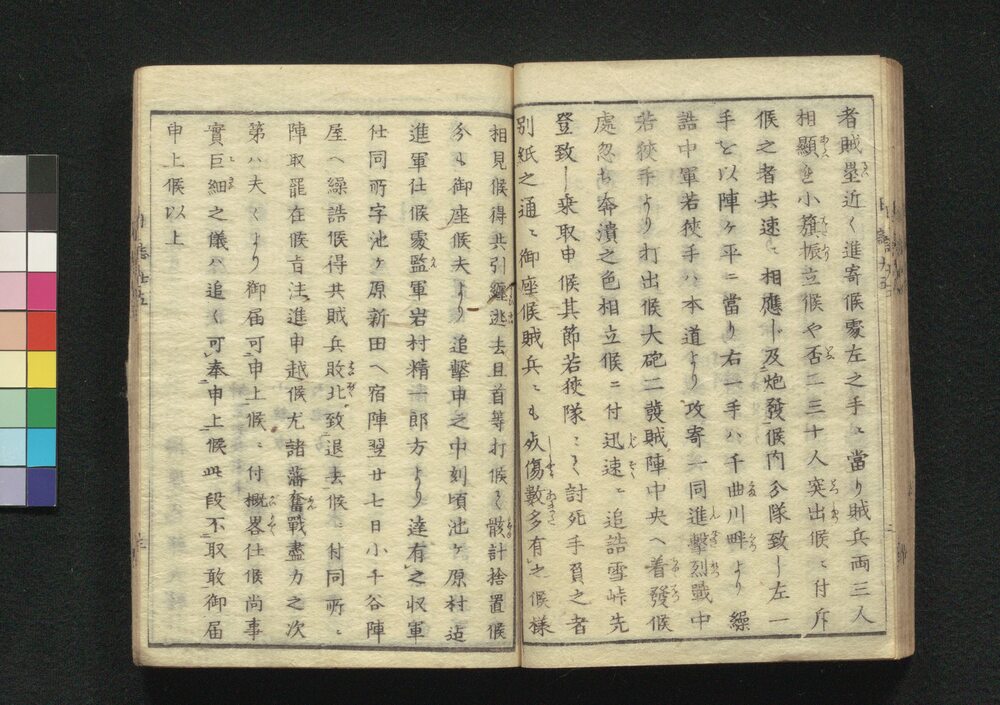 者賊塁近く進寄候處左之手ニ當り賊兵両三人
相顕を小籏振立候や否二三十人突出候ニ付斥
候之者共速ニ相應し及炮發候内分隊致し左一
手を以陣ヶ平ニ當り右一手ハ千曲川畔より繰
詰中軍若狭手ハ本道より攻寄一同進撃烈戰中
若狭手より打出候大砲二發賊陣中央へ着發候
處忽ち奔潰之色相立候ニ付迅速ニ追詰雪峠先
登致し乗取申候其節若狭隊ニも討死手負之者
別紙之通ニ御座候賊兵ニも死傷數多有之候様
相見候得共引纒逃去且首等打候も骸計捨置候
分も御座候夫より追撃申之中刻頃池ヶ原村迠
進軍仕候處監軍岩村精一郎方より達有之収軍
仕同所字池ヶ原新田へ宿陣翌廿七日小千谷陣
屋へ繰詰候得共賊兵敗北致退去候ニ付同所ニ
陣取罷在候旨注進申越候尤諸藩奮戰盡力之次
第ハ夫々より御届可申上候ニ付概畧仕候尚事
實巨細之儀ハ追々可奉申上候此段不取敢御届
申上候以上